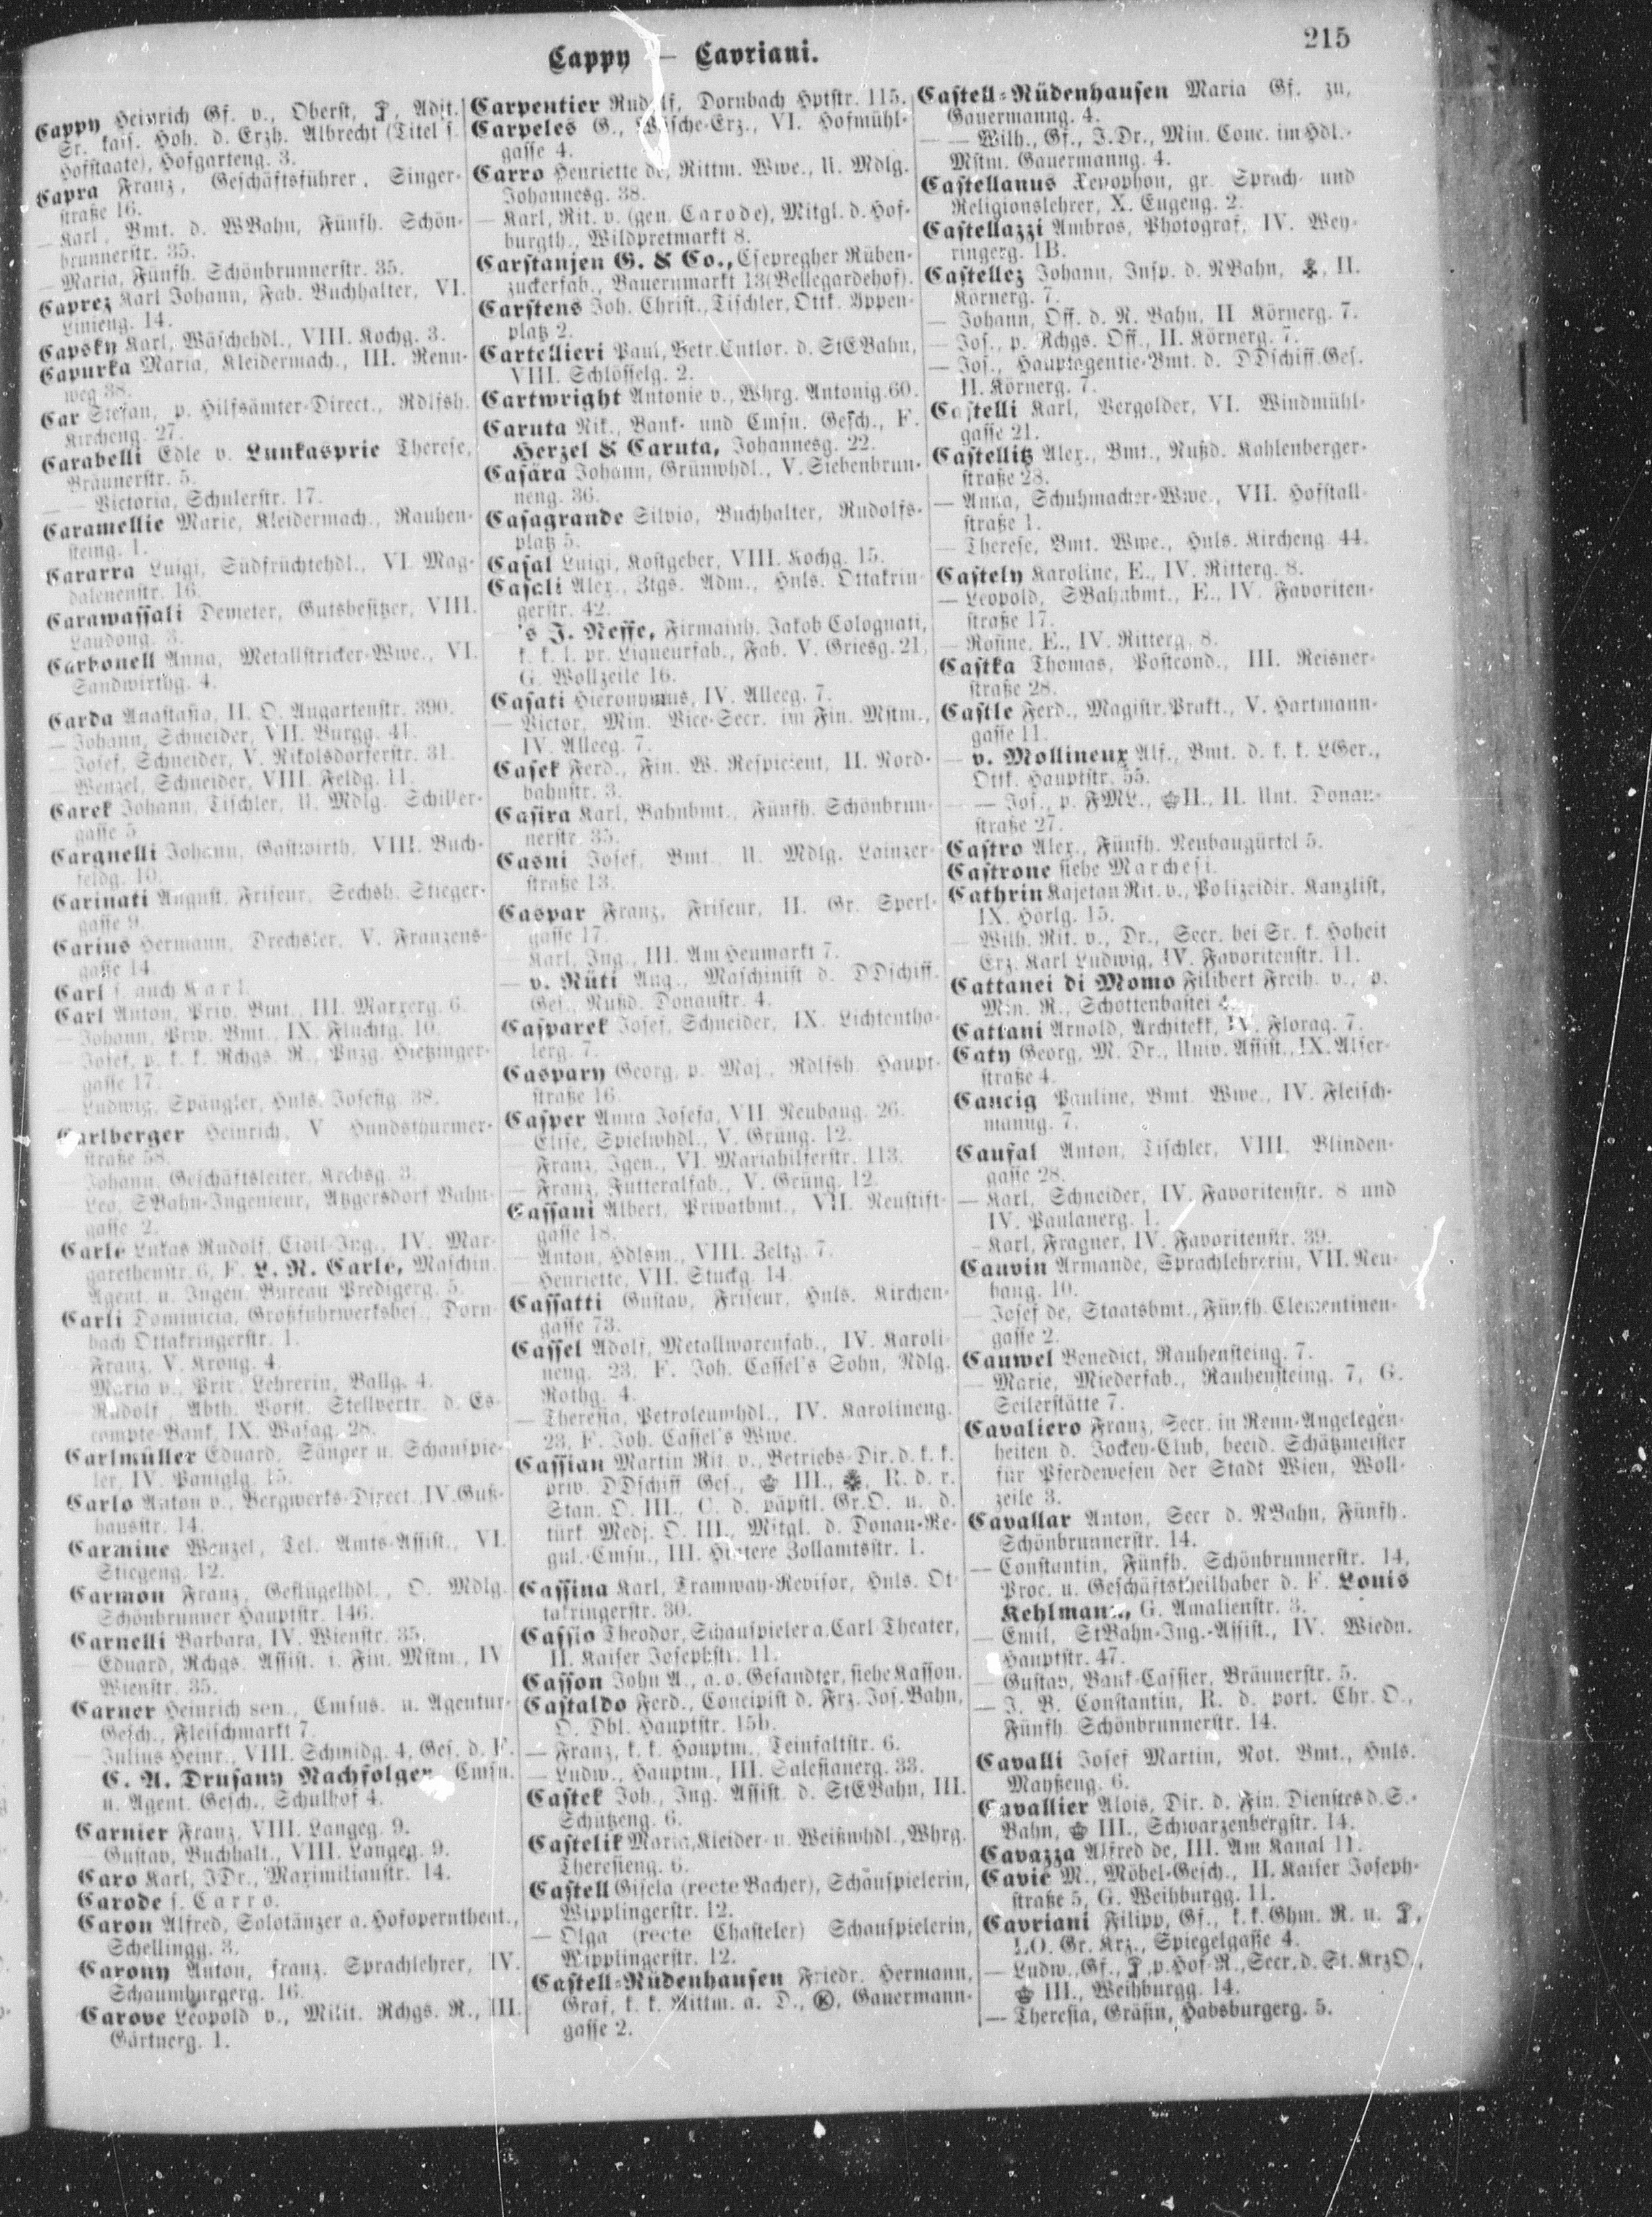 Cappy — Cavriani.
215
Cappy Heinrich Gf. v., Oberst, Adjt.
Sr. kais. Hoh. d. Erzh. Albrecht (Titel s.
Hofstaate), Hofgarteng. 3.
Capra Franz, Geschäftsführer, Singer-
straße 16.
— Karl, Bmt. d. WBahn, Fünfh. Schön-
brunnerstr. 35.
— Maria, Fünfh. Schönbrunnerstr. 35.
Caprez Karl Johann, Fab. Buchhalter, VI.
Linieng. 14.
Capsky Karl, Wäschehdl., VIII. Kochg. 3.
Capurka Maria, Kleidermach., III. Renn-
weg 38.
Car Stefan, p. Hilfsämter-Direct., Rdlfsh.
Kircheng. 27.
Carabelli Edle v. Lunkasprie Therese,
Bräunerstr. 5.
— — Victoria, Schulerstr. 17.
Caramellie Marie, Kleidermach., Rauhen-
steing. 1.
Cararra Luigi, Südfrüchtehdl., VI. Mag-
dalenenstr. 16.
Carawassali Demeter, Gutsbesitzer, VIII.
Laudong. 3.
Carbonell Anna, Metallstricker-Wwe., VI.
Sandwirthg. 4.
Carda Anastasia, II. O. Augartenstr. 390.
— Johann, Schneider, VII. Burgg. 41.
— Josef, Schneider, V. Nikolsdorferstr. 31.
— Wenzel, Schneider, VIII. Feldg. 11.
Carek Johann, Tischler, U. Mdlg. Schiller-
gasse 5.
Cargnelli Johann, Gastwirth, VIII. Buch-
feldg. 10.
Carinati August, Friseur, Sechsh. Stieger-
gasse 9.
Carius Hermann, Drechsler, V. Franzens-
gasse 14.
Carl s. auch Karl.
Carl Anton, Priv. Bmt., III. Marxerg. 6.
— Johann, Priv. Bmt., IX. Fluchtg. 10.
— Josef, p. k. k. Rchgs. R., Pnzg. Hietzinger-
gasse 17.
— Ludwig, Spängler, Hnls. Josefig. 38.
Carlberger Heinrich, V. Hundsthurmer-
straße 58.
— Johann, Geschäftsleiter, Krebsg. 3.
— Leo, SBahn-Ingenieur, Atzgersdorf Bahn-
gasse 2.
Carle Lukas Rudolf, Civil-Ing., IV. Mar-
garethenstr. 6, F. L. R. Carle, Maschin.
Agent. u. Ingen. Bureau Predigerg. 5.
Carli Dominicia, Großfuhrwerksbes., Dorn-
bach Ottakringerstr. 1.
— Franz, V. Krong. 4.
— Maria v., Priv. Lehrerin, Ballg. 4.
— Rudolf, Abth. Vorst. Stellvertr. d. Es-
compte-Bank, IX. Wasag. 28.
Carlmüller Eduard, Sänger u. Schauspie-
ler, IV. Paniglg. 15.
Carlo Anton v., Bergwerks-Direct., IV. Guß-
hausstr. 14.
Carmine Wenzel, Tel. Amts-Assist., VI.
Stiegeng. 12.
Carmon Franz, Geflügelhdl., O. Mdlg.
Schönbrunner Hauptstr. 146.
Carnelli Barbara, IV. Wienstr. 35.
— Eduard, Rchgs. Assist. i. Fin. Mstm., IV.
Wienstr. 35.
Carner Heinrich sen., Cmsns. u. Agentur-
Gesch., Fleischmarkt 7.
— Julius Heinr., VIII. Schmidg. 4, Ges. d. F.
C. A. Drusany Nachfolger, Cmsn.
u. Agent. Gesch., Schulhof 4.
Carnier Franz, VIII. Langeg. 9.
— Gustav, Buchhalt., VIII. Langeg. 9.
Caro Karl, JDr., Maximilianstr. 14.
Carode s. Carro.
Caron Alfred, Solotänzer a. Hofoperntheat.,
Schellingg. 3.
Carony Anton, franz. Sprachlehrer, IV.
Schaumburgerg. 16.
Carove Leopold v., Milit. Rchgs. R., III.
Gärtnerg. 1.
Carpentier Rudolf, Dornbach Hptstr. 115.
Carpeles G., Wäsche-Erz., VI. Hofmühl-
gasse 4.
Carro Henriette de, Rittm. Wwe., U. Mdlg.
Johannesg. 38.
— Karl, Rit. v. (gen. Carode), Mitgl. d. Hof-
burgth., Wildpretmarkt 8.
Carstanjen G. & Co., Csepregher Rüben-
zuckerfab., Bauernmarkt 13 (Bellegardehof).
Carstens Joh. Christ., Tischler, Ottk. Yppen-
platz 2.
Cartellieri Paul, Betr. Cntlor. d. StEBahn,
VIII. Schlösselg. 2.
Cartwright Antonie v., Whrg. Antonig. 60.
Caruta Nik., Bank- und Cmsn. Gesch., F.
Herzel & Caruta, Johannesg. 22.
Casára Johann, Grünwhdl., V. Siebenbrun-
neng. 36.
Casagrande Silvio, Buchhalter, Rudolfs-
platz 5.
Casal Luigi, Kostgeber, VIII. Kochg. 15.
Casali Alex., Ztgs. Adm., Hnls. Ottakrin-
gerstr. 42.
— 's J. Neffe, Firmainh. Jakob Colognati,
k. k. l. pr. Liqueurfab., Fab. V. Griesg. 21,
G. Wollzeile 16.
Casati Hieronymus, IV. Alleeg. 7.
— Victor, Min. Vice-Secr. im Fin. Mstm.,
IV. Alleeg. 7.
Casek Ferd., Fin. W. Respicient, II. Nord-
bahnstr. 3.
Casira Karl, Bahnbmt., Fünfh. Schönbrun-
nerstr. 35.
Casni Josef, Bmt. U. Mdlg. Lainzer-
straße 13.
Caspar Franz, Friseur, II. Gr. Sperl-
gasse 17.
— Karl, Ing., III. Am Heumarkt 7.
— v. Rüti Aug., Maschinist d. DDschiff.
Ges., Nußd. Donaustr. 4.
Casparek Josef, Schneider, IX. Lichtentha-
lerg. 7.
Caspary Georg, p. Maj., Rdlfsh. Haupt-
straße 16.
Casper Anna Josefa, VII. Neubaug. 26.
— Elise, Spielwhdl., V. Grüng. 12.
— Franz, Igen., VI. Mariahilferstr. 113.
— Franz, Futteralfab., V. Grüng. 12.
Cassani Albert, Privatbmt., VII. Neustift-
gasse 18.
— Anton, Hdlsm., VIII. Zeltg. 7.
— Henriette, VII. Stuckg. 14.
Cassatti Gustav, Friseur, Hnls. Kirchen-
gasse 73.
Cassel Adolf, Metallwarenfab., IV. Karoli-
neng. 23, F. Joh. Cassel's Sohn, Ndlg.
Rothg. 4.
— Theresia, Petroleumhdl., IV. Karolineng.
23, F. Joh. Cassel's Wwe.
Cassian Martin Rit. v., Betriebs-Dir. d. k. k.
priv. DDschiff Ges., III., R. d. r.
Stan. O. III., C. d. päpstl. Gr. O. u. d.
türk. Medj. O. III., Mitgl. d. Donau-Re-
gul.-Cmsn., III. Hintere Zollamtsstr. 1.
Cassina Karl, Tramway-Revisor, Hnls. Ot-
takringerstr. 30.
Cassio Theodor, Schauspieler a. Carl Theater,
II. Kaiser Josephstr. 11.
Casson John A., a. o. Gesandter, siehe Kasson.
Castaldo Ferd., Concipist d. Frz. Jos. Bahn,
O. Dbl. Hauptstr. 15b.
— Franz, k. k. Hauptm., Teinfaltstr. 6.
— Ludw., Hauptm., III. Salesianerg. 33.
Castek Joh., Ing. Assist. d. StEBahn, III.
Schützeng. 6.
Castelik Maria, Kleider- u. Weißwhdl., Whrg.
Theresieng. 6.
Castell Gisela (recte Bacher), Schauspielerin,
Wipplingerstr. 12.
— Olga (recte Chasteler) Schauspielerin,
Wipplingerstr. 12.
Castell-Rüdenhausen Friedr. Hermann,
Graf, k. k. Rittm. a. D., Ⓚ, Gauermann-
gasse 2.
Castell-Rüdenhausen Maria Gf. zu,
Gauermanng. 4.
— — Wilh., Gf., J. Dr., Min. Conc. im Hdl.-
Mstm. Gauermanng. 4.
Castellanus Xenophon, gr. Sprach- und
Religionslehrer, X. Eugeng. 2.
Castellazzi Ambros, Photograf, IV. Wey-
ringerg. 1B.
Castellez Johann, Insp. d. NBahn, II.
Körnerg. 7.
— Johann, Off. d. N. Bahn, II Körnerg. 7.
— Jos., p. Rchgs. Off., II. Körnerg. 7.
— Jos., Hauptagentie-Bmt. d. DDschiff. Ges.
II. Körnerg. 7.
Castelli Karl, Vergolder, VI. Windmühl-
gasse 21.
Castellitz Alex., Bmt., Nußd. Kahlenberger-
straße 28.
— Anna, Schuhmacher-Wwe., VII. Hofstall-
straße 1.
— Therese, Bmt. Wwe., Hnls. Kircheng. 44.
Castely Karoline, E., IV. Ritterg. 8.
— Leopold, SBahnbmt., E., IV. Favoriten-
straße 17.
— Rosine, E., IV. Ritterg. 8.
Castka Thomas, Postcond., III. Reisner-
straße 28.
Castle Ferd., Magistr. Prakt., V. Hartmann-
gasse 11.
— v. Mollineux Alf., Bmt. d. k. k. LGer.,
Ottk. Hauptstr. 55.
— — Jos., p. FML., II., II. Unt. Donau-
straße 27.
Castro Alex., Fünfh. Neubaugürtel 5.
Castrone siehe Marchesi.
Cathrin Kajetan Rit. v., Polizeidir. Kanzlist,
IX. Hörlg. 15.
— Wilh. Rit. v., Dr., Secr. bei Sr. k. Hoheit
Erz. Karl Ludwig, IV. Favoritenstr. 11.
Cattanei di Momo Filibert Freih. v., p.
Min. R., Schottenbastei 4.
Cattani Arnold, Architekt, IV. Florag. 7.
Caty Georg, M. Dr., Univ. Assist., IX. Alser-
straße 4.
Caucig Pauline, Bmt. Wwe., IV. Fleisch-
manng. 7.
Causal Anton, Tischler, VIII. Blinden-
gasse 28.
— Karl, Schneider, IV. Favoritenstr. 8 und
IV. Paulanerg. 1.
— Karl, Fragner, IV. Favoritenstr. 39.
Cauvin Armande, Sprachlehrerin, VII. Neu-
baug. 10.
— Josef de, Staatsbmt., Fünfh. Clementinen-
gasse 2.
Cauwel Benedict, Rauhensteing. 7.
— Marie, Miederfab., Rauhensteing. 7, G.
Seilerstätte 7.
Cavaliero Franz, Secr. in Renn-Angelegen-
heiten d. Jockey-Club, beeid. Schätzmeister
für Pferdewesen der Stadt Wien, Woll-
zeile 3.
Cavallar Anton, Secr d. NBahn, Fünfh.
Schönbrunnerstr. 14.
— Constantin, Fünfh. Schönbrunnerstr. 14,
Proc. u. Geschäftstheilhaber d. F. Louis
Kehlmann, G. Amalienstr. 3.
— Emil, StBahn-Ing.-Assist., IV. Wiedn.
Hauptstr. 47.
— Gustav, Bank-Cassier, Bräunerstr. 5.
— J. B. Constantin, R. d. port. Chr. O.,
Fünfh. Schönbrunnerstr. 14.
Cavalli Josef Martin, Not. Bmt., Hnls.
Mayßeng. 6.
Cavallier Alois, Dir. d. Fin. Dienstes d. S.-
Bahn, III., Schwarzenbergstr. 14.
Cavazza Alfred de, III. Am Kanal 11.
Cavić M., Möbel-Gesch., II. Kaiser Joseph-
straße 5, G. Weihburgg. 11.
Cavriani Filipp, Gf., k. k. Ghm. R. u.
LO. Gr. Krz., Spiegelgasse 4.
— Ludw., Gf., p. Hof-R., Secr. d. St. KrzO.,
III., Weihburgg. 14.
— Theresia, Gräfin, Habsburgerg. 5.